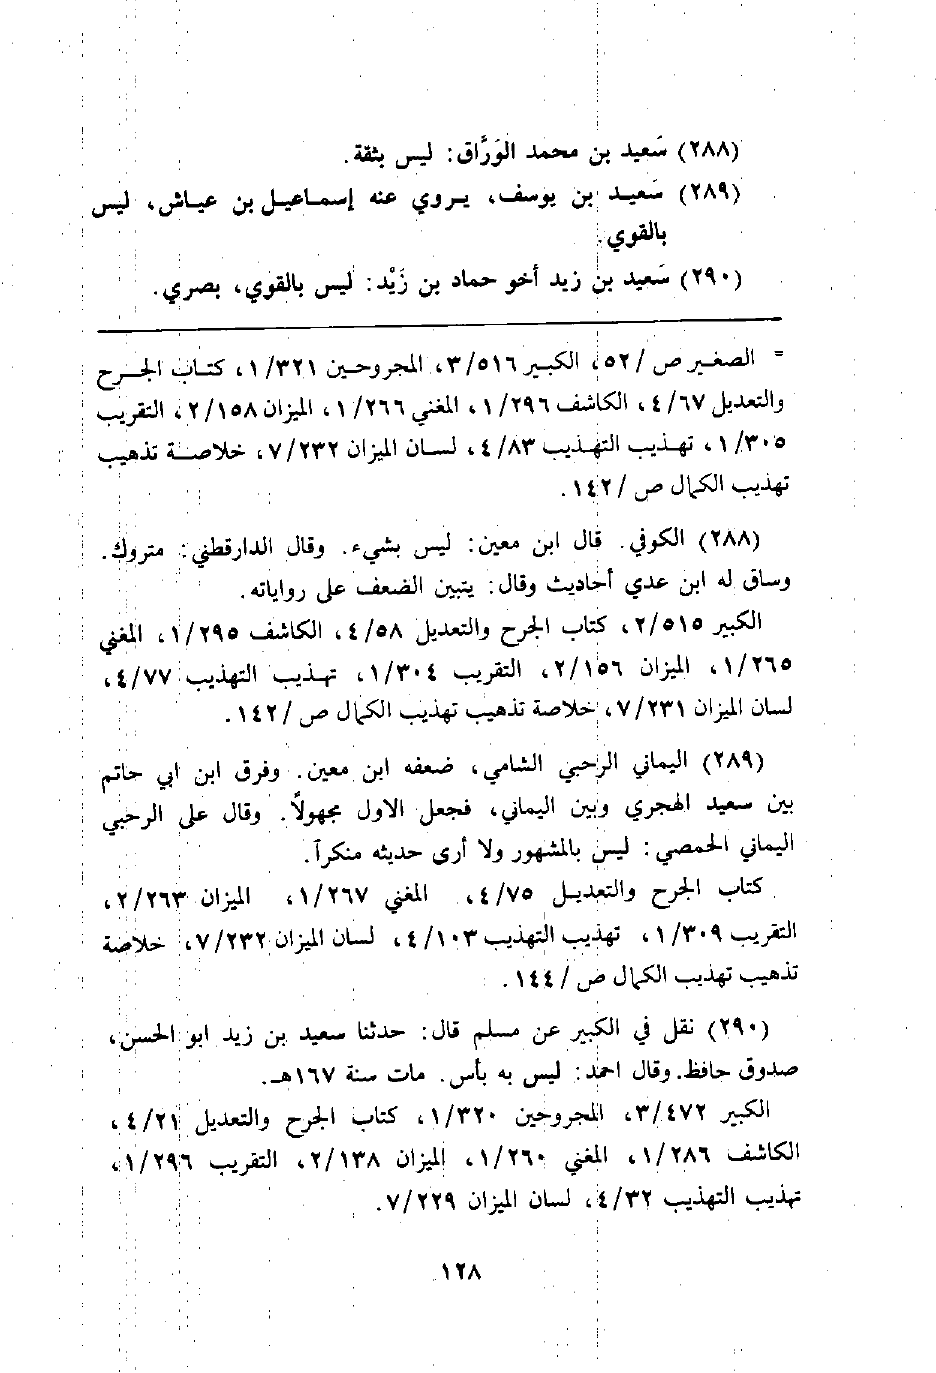 (٢٨٨) سَعيد بن محمد الوَرَّاق: ليس بثقة.
(٢٨٩) سَعيد بن يوسف، يروي عنه إسماعيل بن عياش، ليس
بالقوي.
(٢٩٠) سَعيد بن زيد أخو حماد بن زَيْد: ليس بالقوي، بصري.
= الصغير ص /٥٢، الكبير ٣/٥١٦، المجروحين ١/٣٢١، كتاب الجرح
والتعديل ٤/٦٧، الكاشف ١/٢٩٦، المغني ١/٢٦٦، الميزان ٢/١٥٨، التقريب
١/٣٠٥، تهذيب التهذيب ٤/٨٣، لسان الميزان ٧/٢٣٢، خلاصة تذهيب
تهذيب الكمال ص /١٤٢.
(٢٨٨) الكوفي. قال ابن معين: ليس بشيء. وقال الدارقطني: متروك.
وساق له ابن عدي أحاديث وقال: يتبين الضعف على رواياته.
الكبير ٢/٥١٥، كتاب الجرح والتعديل ٤/٥٨، الكاشف ١/٢٩٥، المغني
١/٢٦٥، الميزان ٢/١٥٦، التقريب ١/٣٠٤، تهذيب التهذيب ٤/٧٧،
لسان الميزان ٧/٢٣١، خلاصة تذهيب تهذيب الكمال ص /١٤٢.
(٢٨٩) اليماني الرحبي الشامي، ضعفه ابن معين. وفرق ابن ابي حاتم
بين سعيد الهجري وبين اليماني، فجعل الاول مجهولاً. وقال على الرحبي
اليماني الحمصي: ليس بالمشهور ولا أرى حديثه منكراً.
كتاب الجرح والتعديل ٤/٧٥، المغني ١/٢٦٧، الميزان ٢/٢٦٣،
التقريب ١/٣٠٩، تهذيب التهذيب ٤/١٠٣، لسان الميزان ٧/٢٣٢، خلاصة
تذهيب تهذيب الكمال ص /١٤٤.
(٢٩٠) نقل في الكبير عن مسلم قال: حدثنا سعيد بن زيد ابو الحسن،
صدوق حافظ. وقال احمد: ليس به بأس. مات سنة ١٦٧هـ.
الكبير ٣/٤٧٢، المجروحين ١/٣٢٠، كتاب الجرح والتعديل ٤/٢١،
الكاشف ١/٢٨٦، المغني ١/٢٦٠، الميزان ٢/١٣٨، التقريب ١/٢٩٦،
تهذيب التهذيب ٤/٣٢، لسان الميزان ٧/٢٢٩.
١٢٨